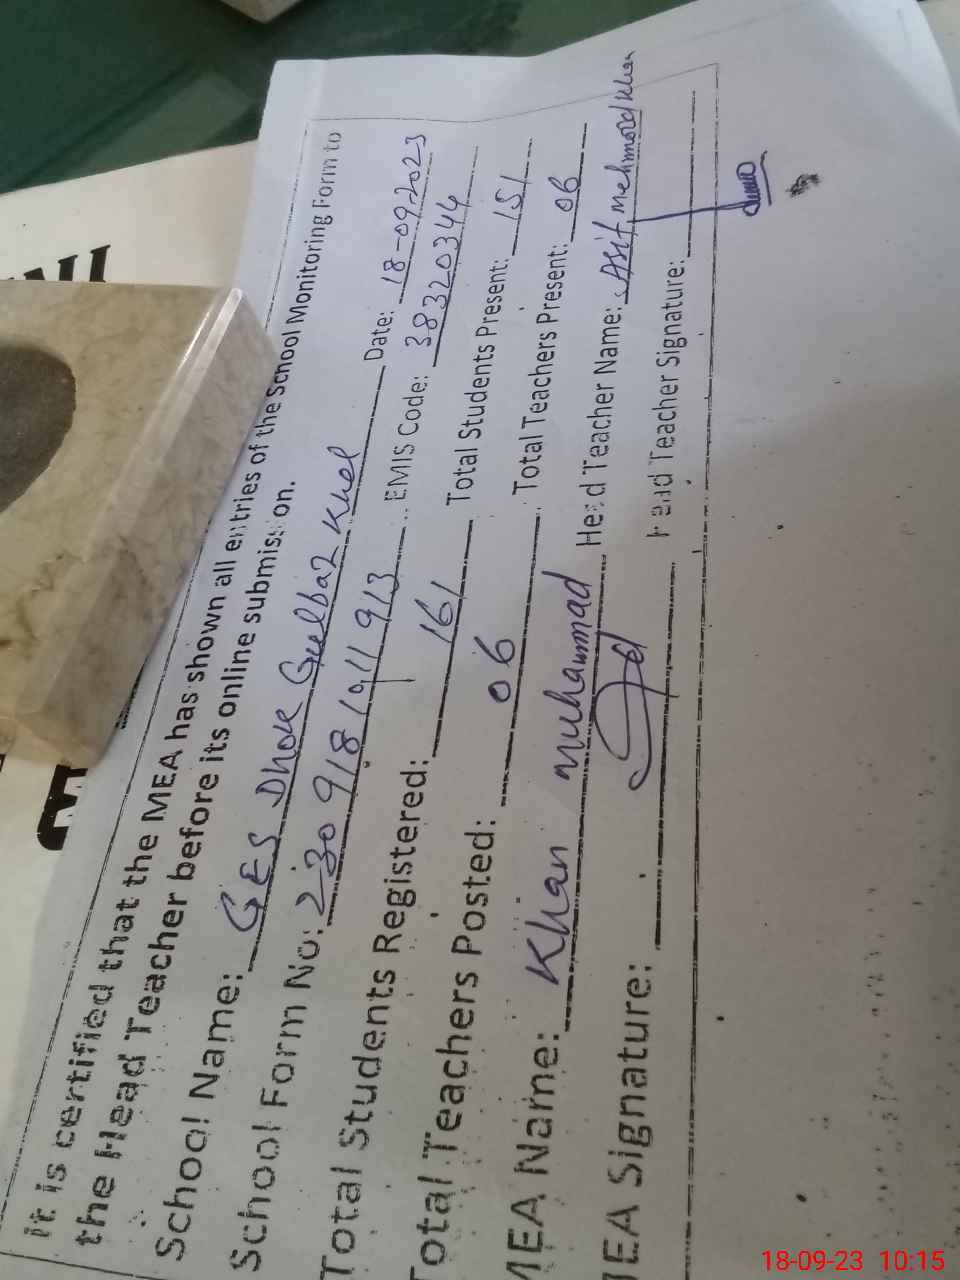 It is certified that the MEA has shown all entries of the School Monitoring Form to
the Head Teacher before its online submission.
School Name: GES Dhok Gulbaz Khel Date: 18-09-2023
School Form No: 230918 1911 913 EMIS Code: 38320344
Total Students Registered: 161 Total Students Present: 151
Total Teachers Posted: 06 Total Teachers Present: 06
MEA Name: Khan Muhammad Head Teacher Name: Asif mehmood Khan
MEA Signature: Head Teacher Signature:
18-09-23 10:15